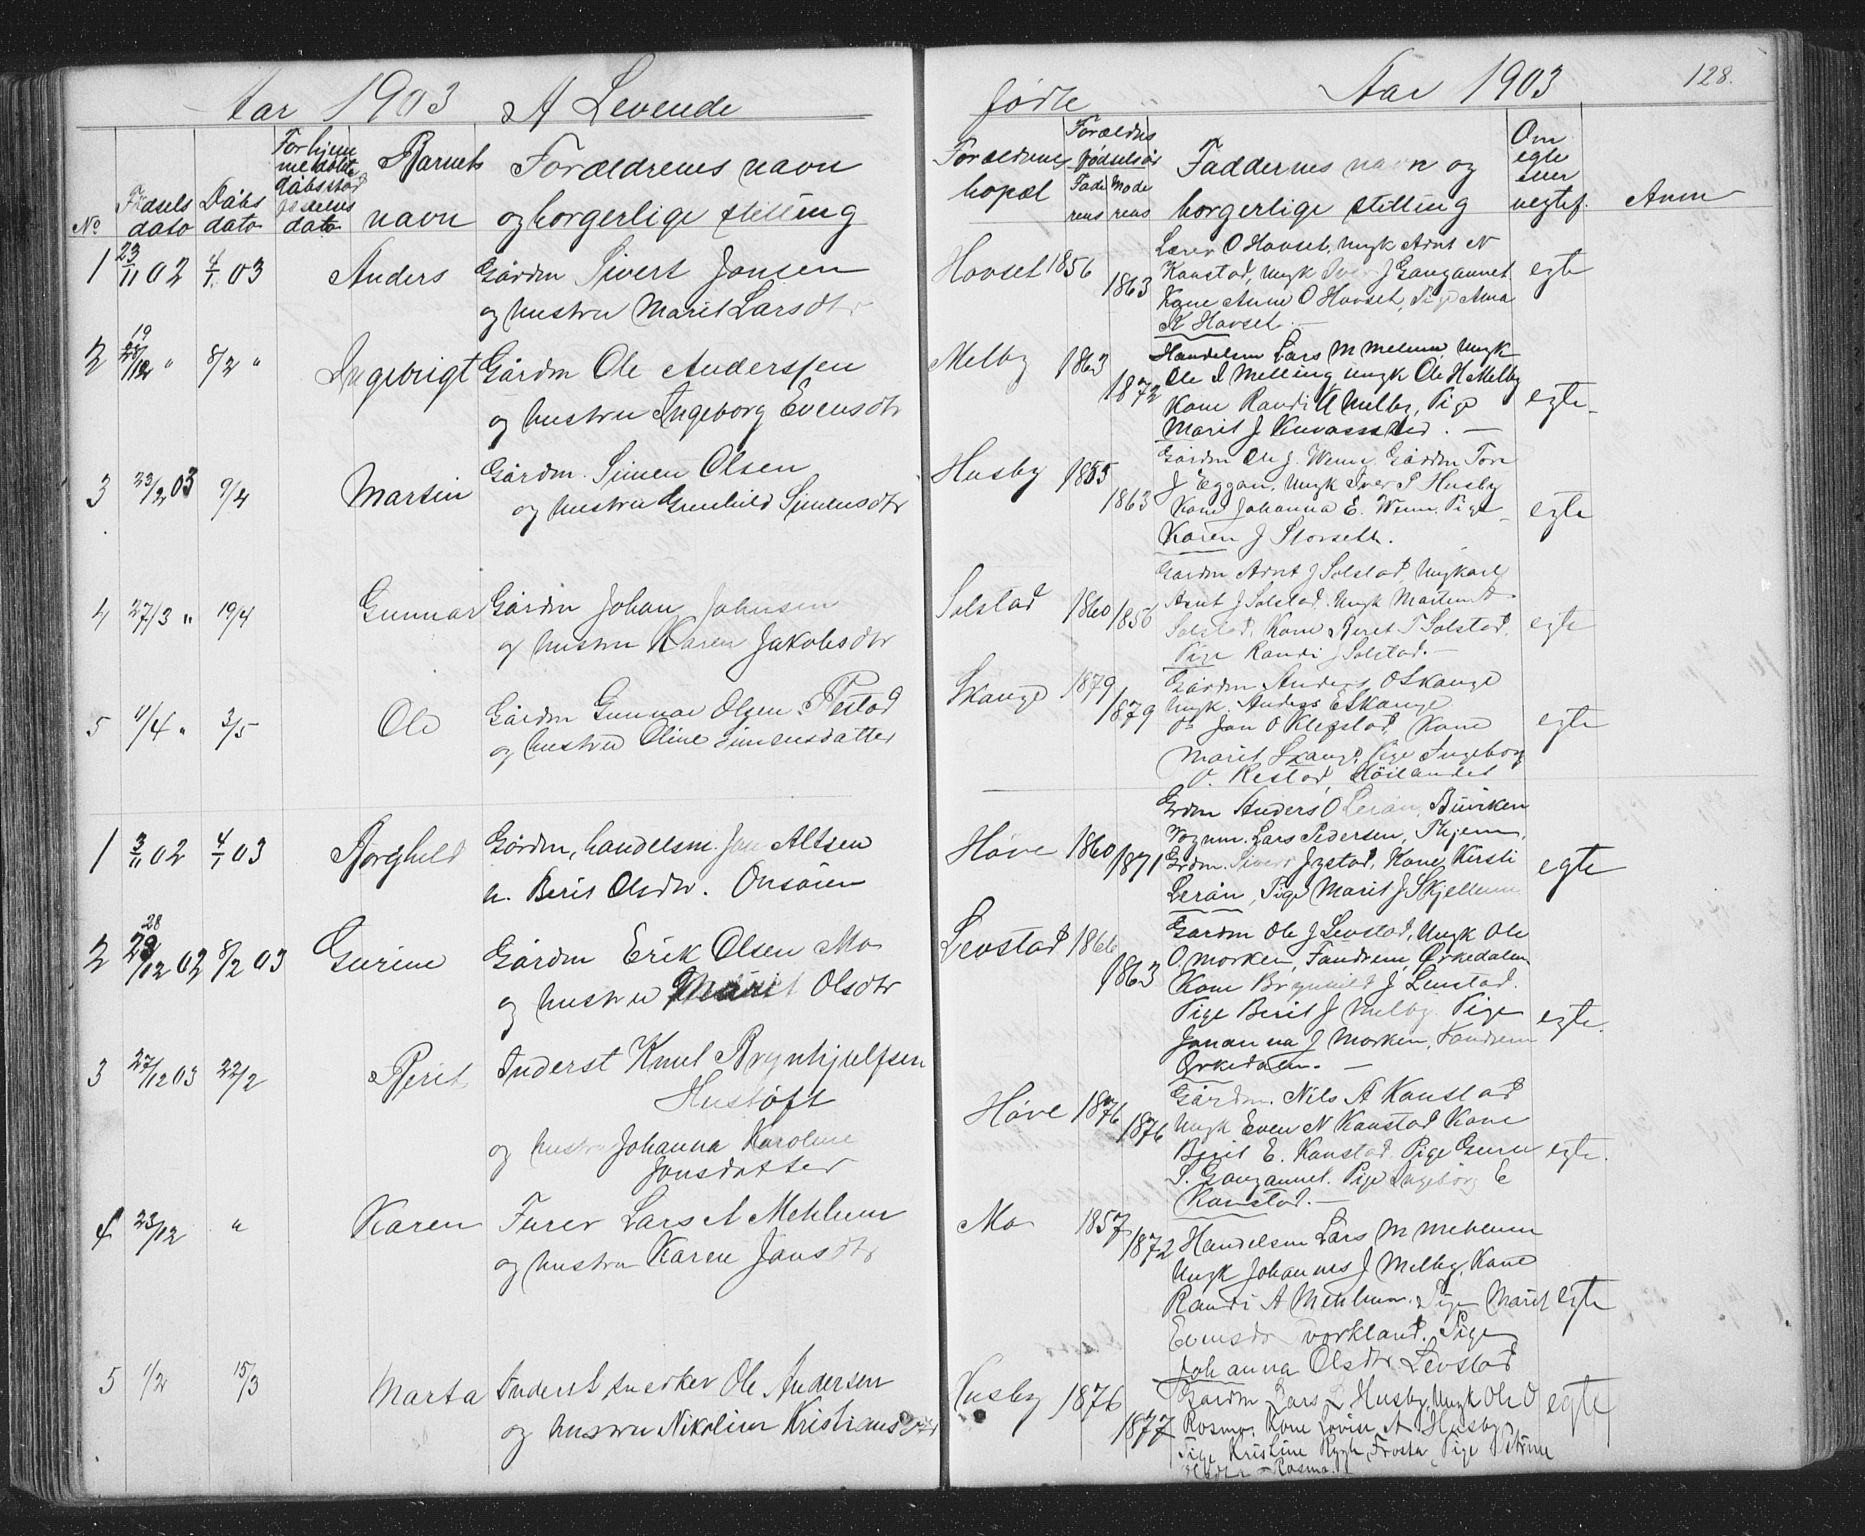 Aar 1903 A Levende
No
Fødsels dato
Dåbs dato
Forhjemmedøbte dåbsstadfæstelses dato
Barnets navn
Forældrenes navn
og borgerlige stilling
1 23/11 02 4/1 03 Anders Gårdm Sivert Jonsen
og hustru Marit Larsdtr
2 19/12 " 8/2 " Ingebrigt Gårdm Ole Anderssen
og hustru Ingeborg Evensdtr
3 23/2 03 9/4 Martin Gårdm. Simen Olsen
og hustru Gunhild Simensdtr
4 27/3 " 19/4 Gunnar Gårdm Johan Johnsen
og hustru Karen Jakobsdtr
5 11/4 " 3/5 Ole Gårdm Gunnar Olsen Restad
og hustru Oline Simensdatter
1 3/11 02 4/1 03 Borghild Gårdm, handelsm. Jon Altsen
h. Berit Olsdtr. Onsøien
2 28/12 02 8/2 03 Gurine Gårdm Erik Olsen Mo
og hustru Marit Olsdtr
3 27/12 03 22/2 Berit Inderst Knut Brynhjulfsen
Hustøft
og hustru Johanna Karoline
Jonsdatter
4 23/12 " Karen Furer Lars A Mehlum
og hustru Karen Jonsdtr
5 1/2 15/3 Marta Inderst snedker Ole Andersen
og hustru Nikoline Kristiansdtr
fødte Aar 1903 128.
Forældrenes bopæl
Forældres fødselsår
Faderens Moderens
Faddernes navn og
borgerlige stilling
Om egte eller uegtef.
Anm
Hovset 1856 1863
Lærer O Hovset, Ungk Arnt N
Kanstad, Ungk Iver J Gangannet
Kone Anne O Hovset, Pige Anna
K Hovset. — egte
Melby 1863 1872
Handelsm Lars M Melum, Ungk
Ole I Melling, Ungk Ole H Melby
Kone Randi A Melby, Pige
Marit J — egte
Husby 1855 1863
Gårdm Ole J. Wenn. Gårdm Tore
J Eggan. Ungk Iver S Husby
Kone Johanna E. Wenn. Pige
Karen J Storseth. egte
Solstad 1860 1856
Gårdm Arnt J Solstad, Ungkarl
Arnt J Solstad. Ungk Martin A
Solstad. Kone Beret T Solstad.
Pige Randi J Solstad. — egte
Skauge 1879 1879
Gårdm Anders O Skauge
Ungk. Anders E Skauge
Do Jon O Klefstad, Kone
Marit Skauge, Pige Ingeborg
O. Restad, Høilandet egte
Høve 1860 1871
Grdm Anders O Lerån, Buviken
Vognm. Lars Pedersen, Thjem,
Grdm. Sivert Jystad. Kone Kirsti
Lerån, Pige Marit J Skjellum egte
Levstad 1866 1863
Gårdm Ole J Levstad, Ungk Ole
O. Morken, Fandrem, Ørkedalen
Kone Brynhild J Levstad.
Pige Berit J Melby. Pige
Johanna J Morken, Fandrem
Ørkedalen. — egte.
Høve 1876 1876
Gårdm. Nils A Kanstad
Ungk Even N Kanstad Kone
Berit E. Kanstad. Pige Guru
S. Gangannet. Pige Ingeborg E
Kanstad. — egte.
Mo 1857 1872
Handelsm Lars M Mehlum
Ungk Johannes J Melby, Kone
Randi A Mehlum. Pige Marit
Evensdr Svorkland. Pige
Johanna Olsdtr Levstad egte
Husby 1876 1877
Gårdm Lars L Husby, Ungk Ole O
Rosmo. Kone Lovise A Husby
Pige Kristine Rygh, Frosta, Pige Petrine
Olsdtr Rosmo. egte